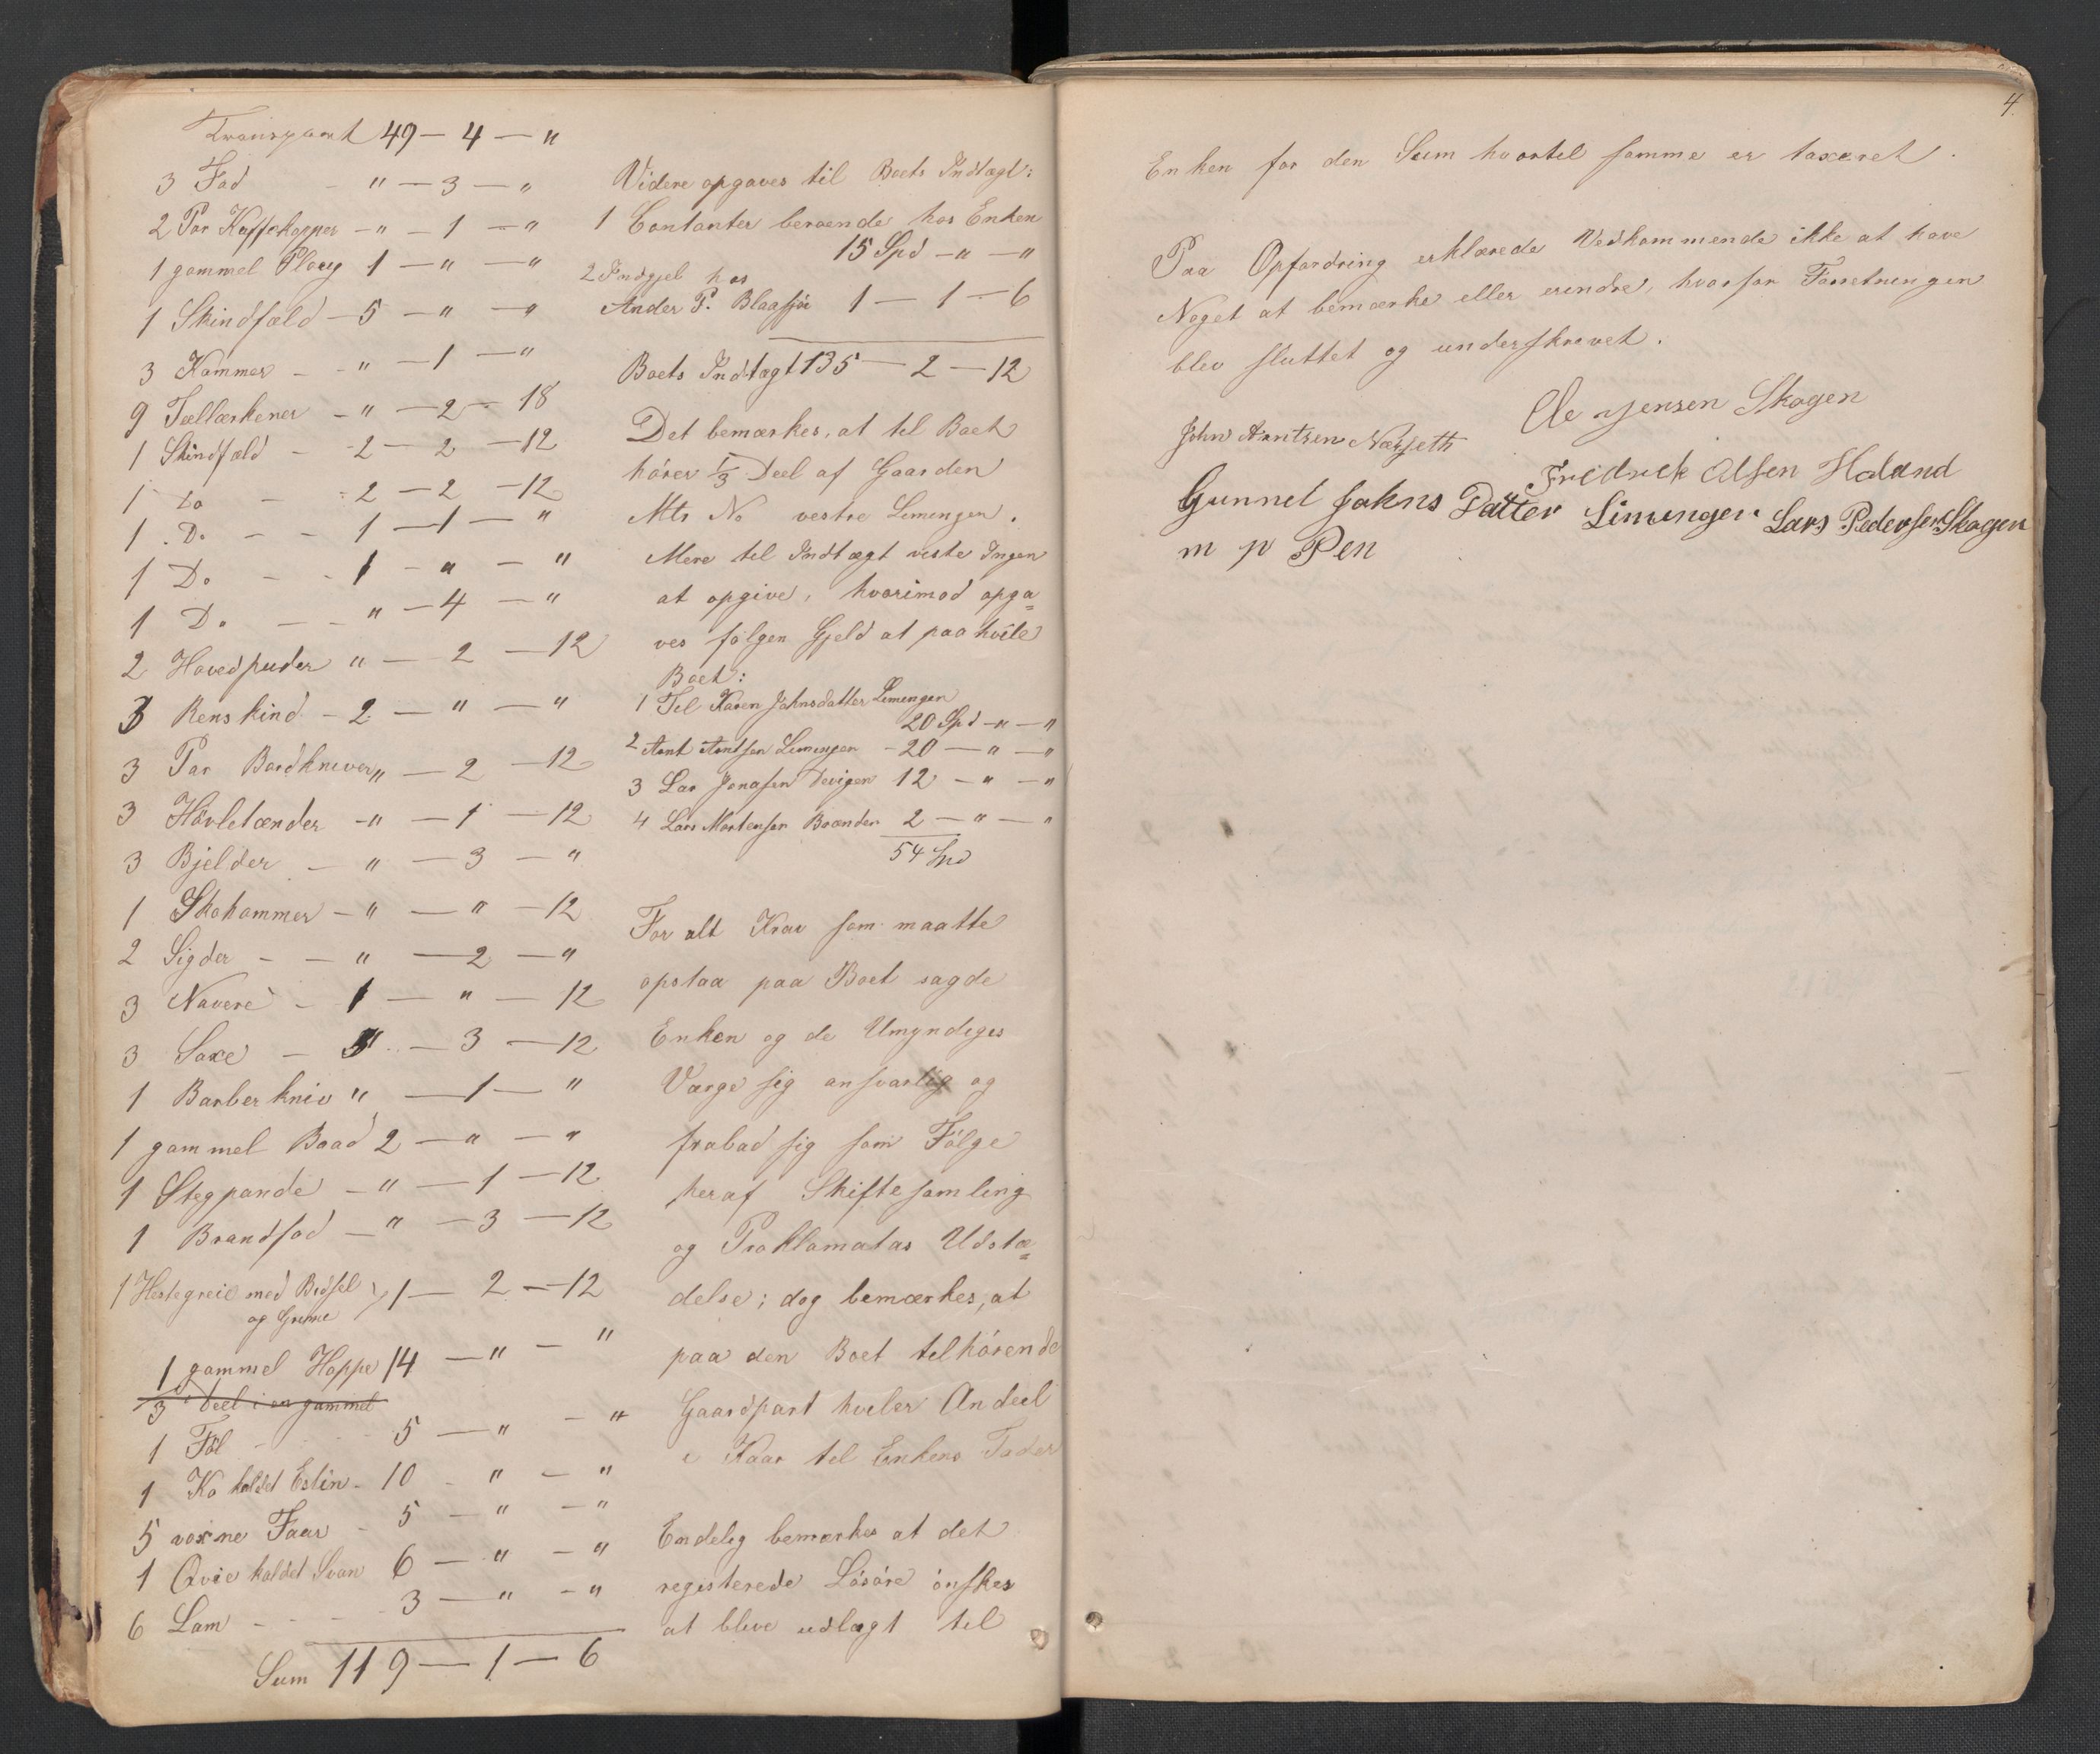 Transport 49 — 4 — "
3 Fad - " — 3 — "
2 Par Kaffekopper - " — 1 — "
1 gammel Ploug 1 — " — "
1 Skindfæld — 5 — " — "
3 Kammer - - " — 1 — "
9 Tællærkener - " — 2 — 18
1 Skindfæld - 2 — 2 — 12
1 Do - 2 — 2 — 12
1 Do - - 1 — 1 — "
1 Do - - 1 - " — "
1 Do - - " — 4 — "
2 Hovedpuder " — 2 — 12
3 Renskind - 2 — " — "
3 Par Bordkniver " — 2 — 12
3 Hövletænder - " — 1 — 12
3 Bjelder - " — 3 — "
1 Skohammer - " — " — 12
2 Sigder - - " — 2 — "
3 Navere - 1 — " — 12
3 Saxe - " — 3 — 12
1 Barberkniv " — 1 — "
1 gammel Baad 2 — " — "
1 Stegpande - " — 1 — 12
1 Brandfod - " — 3 — 12
1 Hestegreie med Bidsel
og Grime } 1 — 2 — 12
1 gammel Hoppe 14 — " — "
3 Deel i en gammel
1 Föl - - - 5 — " — "
1 Ko kaldet Eslin - 10 - " — "
5 voxne Faar - 5 — " — "
1 Qvie kaldet Svan 6 — " — "
6 Lam - - - - 3 — " — "
Sum 119 — 1 — 6
Videre opgaves til Boets Indtægt:
1 Contanter beroende hos Enken
15 Spd — " — "
2 Indgjel hos
Ander P. Blaasjö 1 — 1 — 6
Boets Indtægt 135 — 2 — 12
Det bemærkes, at til Boet
hörer 1/3 Deel af Gaarden
Mtr No vestre Limingen.
Mere til Indtægt viste Ingen
at opgive, hvorimod opga=
ves følgen Gjeld at paahvile
Boet:
1 Til Karen Johnsdatter Limingen
20 Spd — " — "
2 Arnt Arntsen Limingen - 20 — " — "
3 Lar Jonasen Devigen 12 — " — "
4 Lars Mortensen Brænden 2 — " — "
54 Spd
For alt Krav som maatte
opstaa paa Boet sagde
Enken og de Umyndiges
Værge sig ansvarlig og
frabad sig som Fölge
heraf Skiftesamling
og Proklamatas Udstæ=
delse; dog bemærkes, at
paa den Boet tilhörende
Gaardpart hviler Andeel
i Kaar til Enkens Fader
Endelig bemærkes at det
registerede Lösöre önskes
at blive udlagt til
4.
Enken for den Sum hvortil samme er taxeret.
Paa Opfordring erklærede Vedkommende ikke at have
Noget at bemærke eller erindre, hvorfor Forretningen
blev sluttet og underskrevet.
Ole Jensen Skogen
John Arntsen Næsseth
Fredrek Olsen Holand
Gunnel Johns Datter Limingen Lars Pedersen Skogen
m p Pen